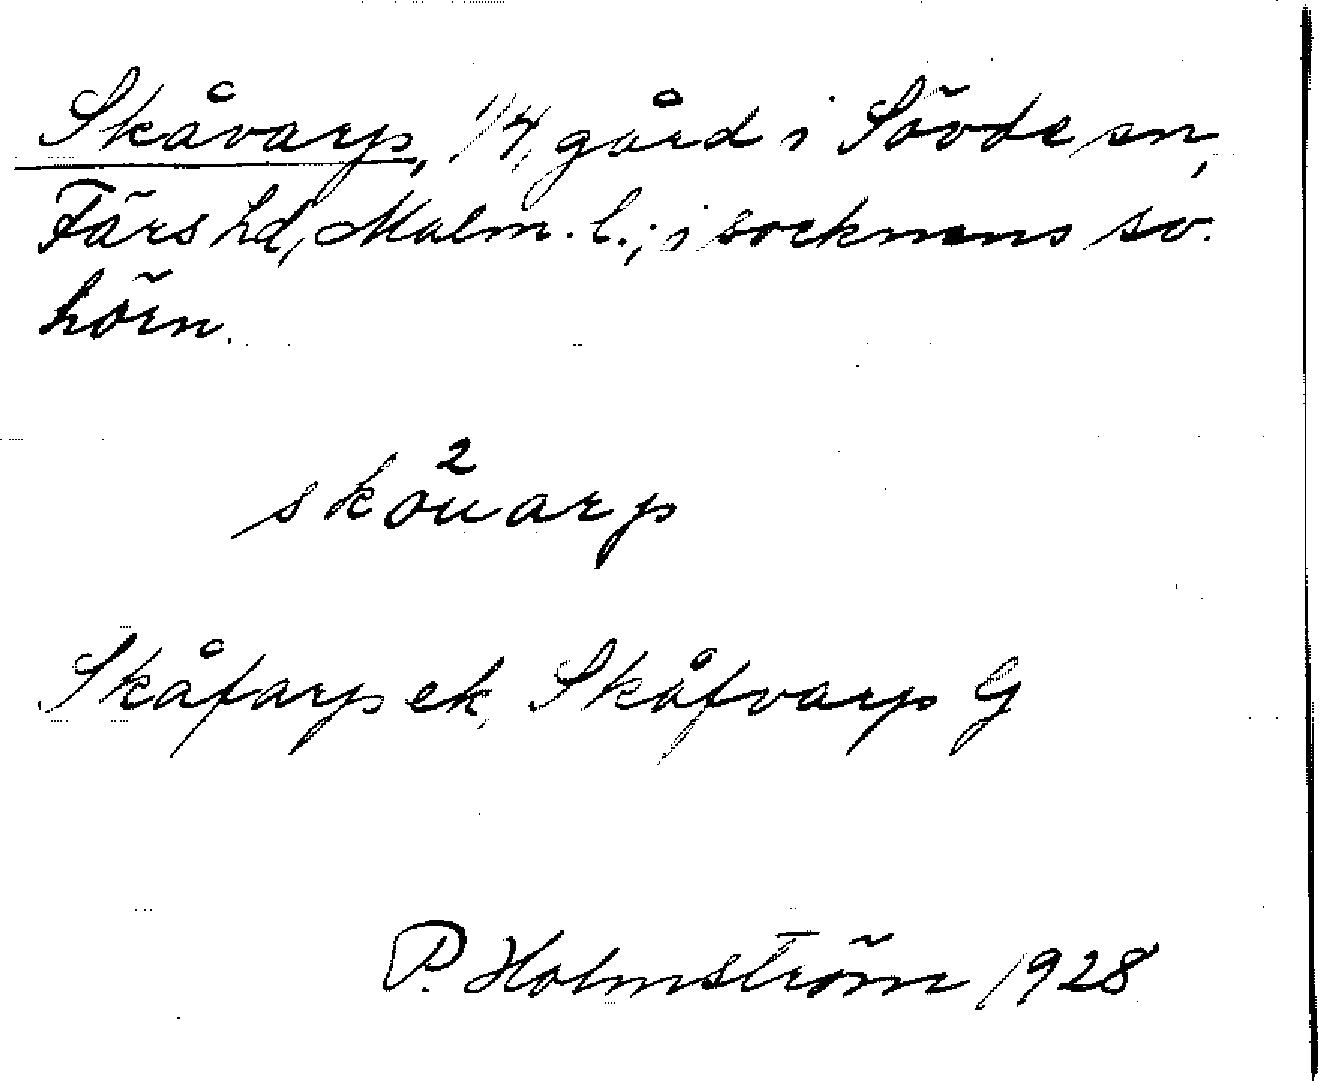 Skåvarp, 1/4, gård i Sövde sn,
Färs hd, Malm. l.; i socknens sv.
hörn.
2
skòuarp
Skåfarp ek, Skåfvarp G
P. Holmström 1928